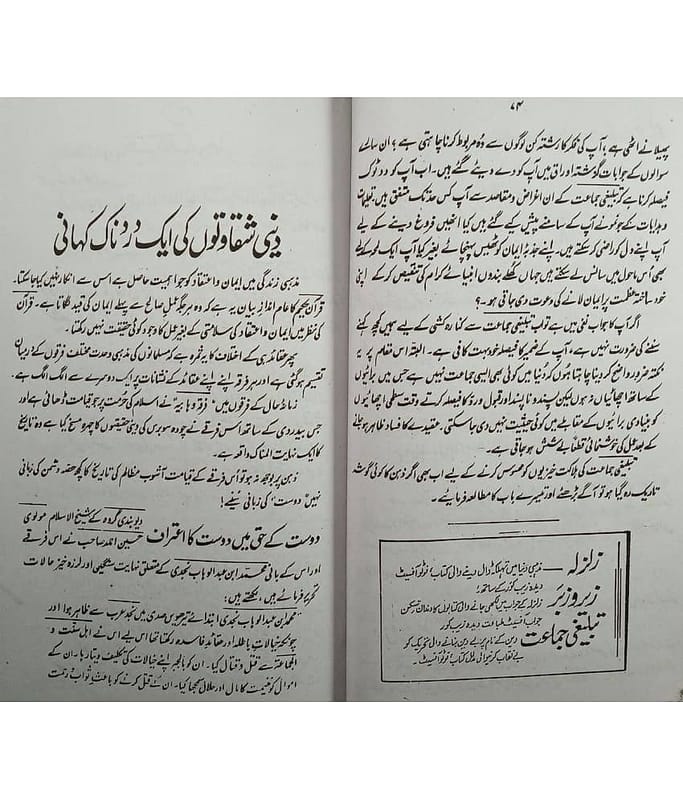 ۷۴
پھیلانے اٹھی ہے، آپ کی فکر کا رشتہ کن لوگوں سے وُہ مربوط کرنا چاہتی ہے؟ ان سارے
سوالوں کے جوابات گزشتہ اوراق میں آپ کو دے دیئے گئے ہیں۔ اب آپ کو دو ٹوک
فیصلہ کرنا ہے کہ تبلیغی جماعت کے ان اغراض و مقاصد سے آپ کس حد تک متفق ہیں، تعلیمات
و ہدایات کے جو نمونے آپ کے سامنے پیش کیے گئے ہیں کیا انھیں فروغ دینے کے لیے
آپ اپنے دل کو راضی کر سکتے ہیں۔ اپنے جذبۂ ایمان کو ٹھیس پہنچائے بغیر کیا آپ ایک لمحہ کے لیے
بھی اُس ماحول میں سانس لے سکتے ہیں جہاں کھلے بندوں انبیائے کرام کی تنقیص کر کے اپنی
خود ساختہ عظمت پر ایمان لانے کی دعوت دی جاتی ہو۔؟
اگر آپ کا جواب نفی میں ہے تو اب تبلیغی جماعت سے کنارہ کشی کے لیے ہمیں کچھ کہنے
سننے کی ضرورت نہیں ہے، آپ کے ضمیر کا فیصلہ خود بہت کافی ہے۔ البتہ اس مقام پر یہ
نکتہ ضرور واضح کر دینا چاہتا ہوں کہ دُنیا میں کوئی بھی ایسی جماعت نہیں ہے جس میں برائیوں
کے ساتھ اچھائیاں نہ ہوں لیکن پسند و ناپسند اور قبول و رد کا فیصلہ کرتے وقت سطحی اچھائیوں
کو بنیادی برائیوں کے مقابلے میں کوئی حیثیت نہیں دی جا سکتی۔ عقیدے کا فساد ظاہر ہو جانے
کے بعد عمل کی خوشنمائی قطعاً بے کشش ہو جاتی ہے۔
تبلیغی جماعت کی ہلاکت خیزیوں کو محسوس کرنے کے لیے اب بھی اگر ذہن کا کوئی گوشہ
تاریک رہ گیا ہو تو آگے بڑھئے اور تیسرے باب کا مطالعہ فرمائیے۔
زلزلہ — مذہبی دنیا میں تہلکہ ڈال دینے والی کتاب، فوٹو آفسیٹ
دیدہ زیب کور کے ساتھ!
زیر و زبر زلزلہ کے جواب میں لکھی جانے والی کتابوں کا دندان شکن
جواب آفسیٹ طباعت دیدہ زیب کور
تبلیغی جماعت دین کے نام پر بے دین بنانے والی تحریک کو
بے نقاب کرنیوالی مدلل کتاب، فوٹو آفسیٹ۔
دینی شقاوتوں کی ایک دردناک کہانی
مذہبی زندگی میں ایمان و اعتقاد کو جو اہمیت حاصل ہے اس سے انکار نہیں کیا جا سکتا۔
قرآن حکیم کا عام اندازِ بیان یہ ہے کہ وہ ہر جگہ عمل صالح سے پہلے ایمان کی قید لگاتا ہے۔ قرآن
کی نظر میں ایمان و اعتقاد کی سلامتی کے بغیر عمل کا وجود کوئی حقیقت نہیں رکھتا۔
پھر عقائد ہی کے اختلاف کا یہ ثمرہ ہے کہ مسلمانوں کی مذہبی وحدت مختلف فرقوں کے درمیان
تقسیم ہو گئی ہے اور ہر فرقہ اپنے اپنے عقائد کے نشانات پر ایک دوسرے سے الگ الگ ہے۔
زمانۂ حال کے فرقوں میں "فرقہ وہابیہ" نے اسلام کی حرمت پر جو قیامت ڈھائی ہے اور
جس بیدردی کے ساتھ اس فرقے نے چودہ سو برس کی دینی حقیقتوں کا چہرہ مسخ کیا ہے وہ تاریخ
کا ایک نہایت المناک واقعہ ہے۔
ذہن پر بوجھ نہ ہو تو اس فرقے کے قیامت آشوب مظالم کی تاریخ کا کچھ حصّہ دشمن کی زبانی
نہیں "دوست" کی زبانی سنیے!
دوست کے حق میں دوست کا اعتراف دیوبندی گروہ کے شیخ الاسلام مولوی
حسین احمد صاحب نے اس فرقے
اور اس کے بانی محمد ابن عبدالوہاب نجدی کے متعلق نہایت سنگین اور لرزہ خیز حالات
تحریر فرمائے ہیں، لکھتے ہیں:
محمد ابن عبدالوہاب نجدی ابتدائے تیرھویں صدی میں نجد عرب سے ظاہر ہوا اور
چونکہ خیالاتِ باطلہ اور عقائد فاسدہ رکھتا تھا اس لیے اس نے اہل سنت و
الجماعۃ سے قتل و قتال کیا۔ ان کو بالجبر اپنے خیالات کی تکلیف دیتا رہا۔ ان کے
اموال کو غنیمت کا مال اور حلال سمجھا کیا۔ ان کے قتل کرنے کو باعثِ ثواب و رحمت